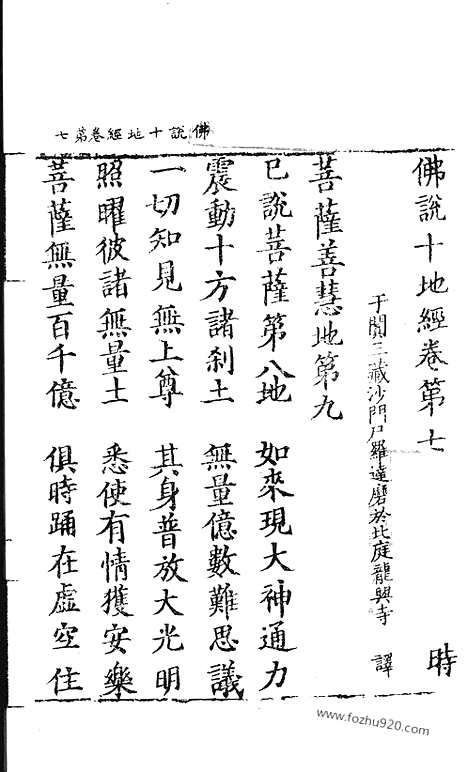 佛說十地經卷第七
佛說十地經卷第七 時
于闐三藏沙門尸羅達磨於北庭龍興寺 譯
菩薩善慧地第九
已說菩薩第八地 如來現大神通力
震動十方諸刹土 無量億數難思議
一切知見無上尊 其身普放大光明
照曜彼諸無量土 悉使有情獲安樂
菩薩無量百千億 俱時踊在虛空住
www.fozhu920.com